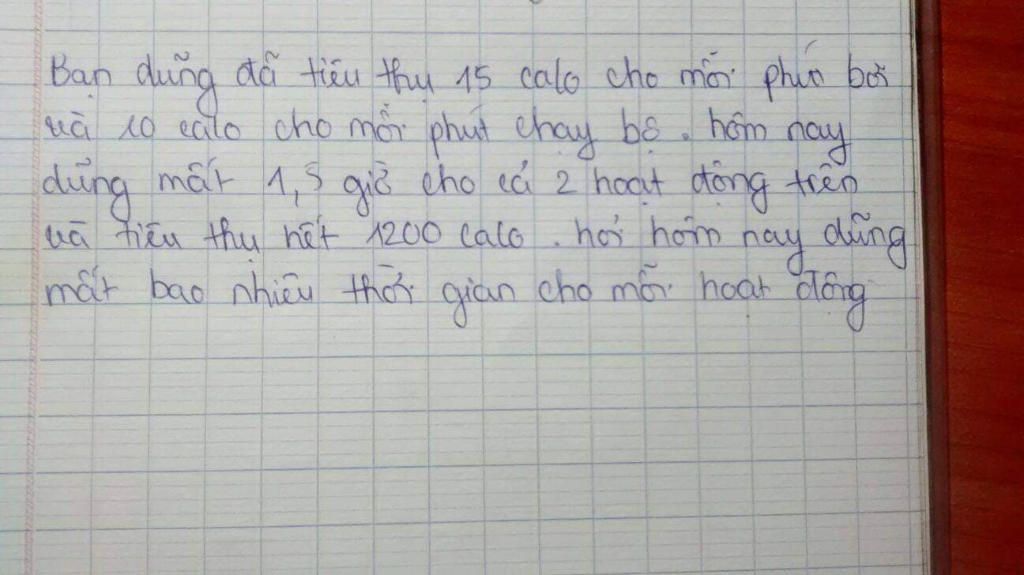 Bạn dũng đã tiêu thụ 15 calo cho mỗi phút bơi
và 10 calo cho mỗi phút chạy bộ. hôm nay
dũng mất 1,5 giờ cho cả 2 hoạt động trên
và tiêu thụ hết 1200 calo. hỏi hôm nay dũng
mất bao nhiêu thời gian cho mỗi hoạt động